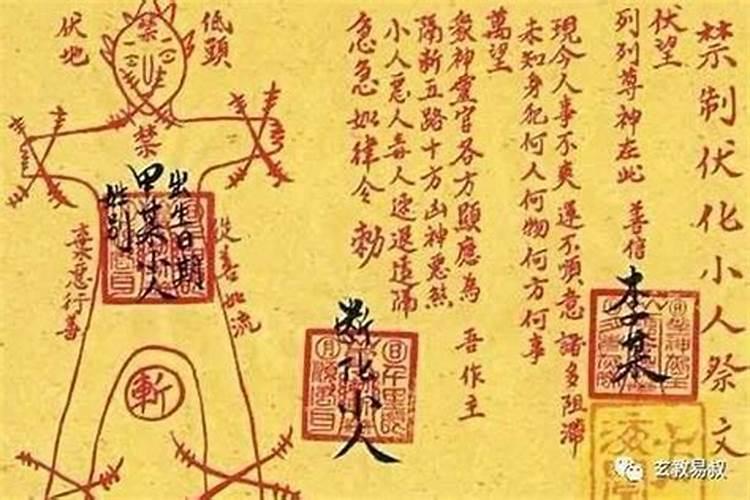 禁制伏化小人祭文
伏望
列列尊神在此 善信 李某
現今人事不爽 運不順意 諸多阻滯
未知身犯何人何物何方何事
萬望
眾神靈官各方顯應為 吾作主
隔斷五路十方凶神惡煞
小人惡人毒人速退遠隔
急急如律令 勅
断化小人
低頭
禁
伏地
禁
出生日期
甲某小人
姓别
從善如流
棄惡行善
斬
玄教易叔